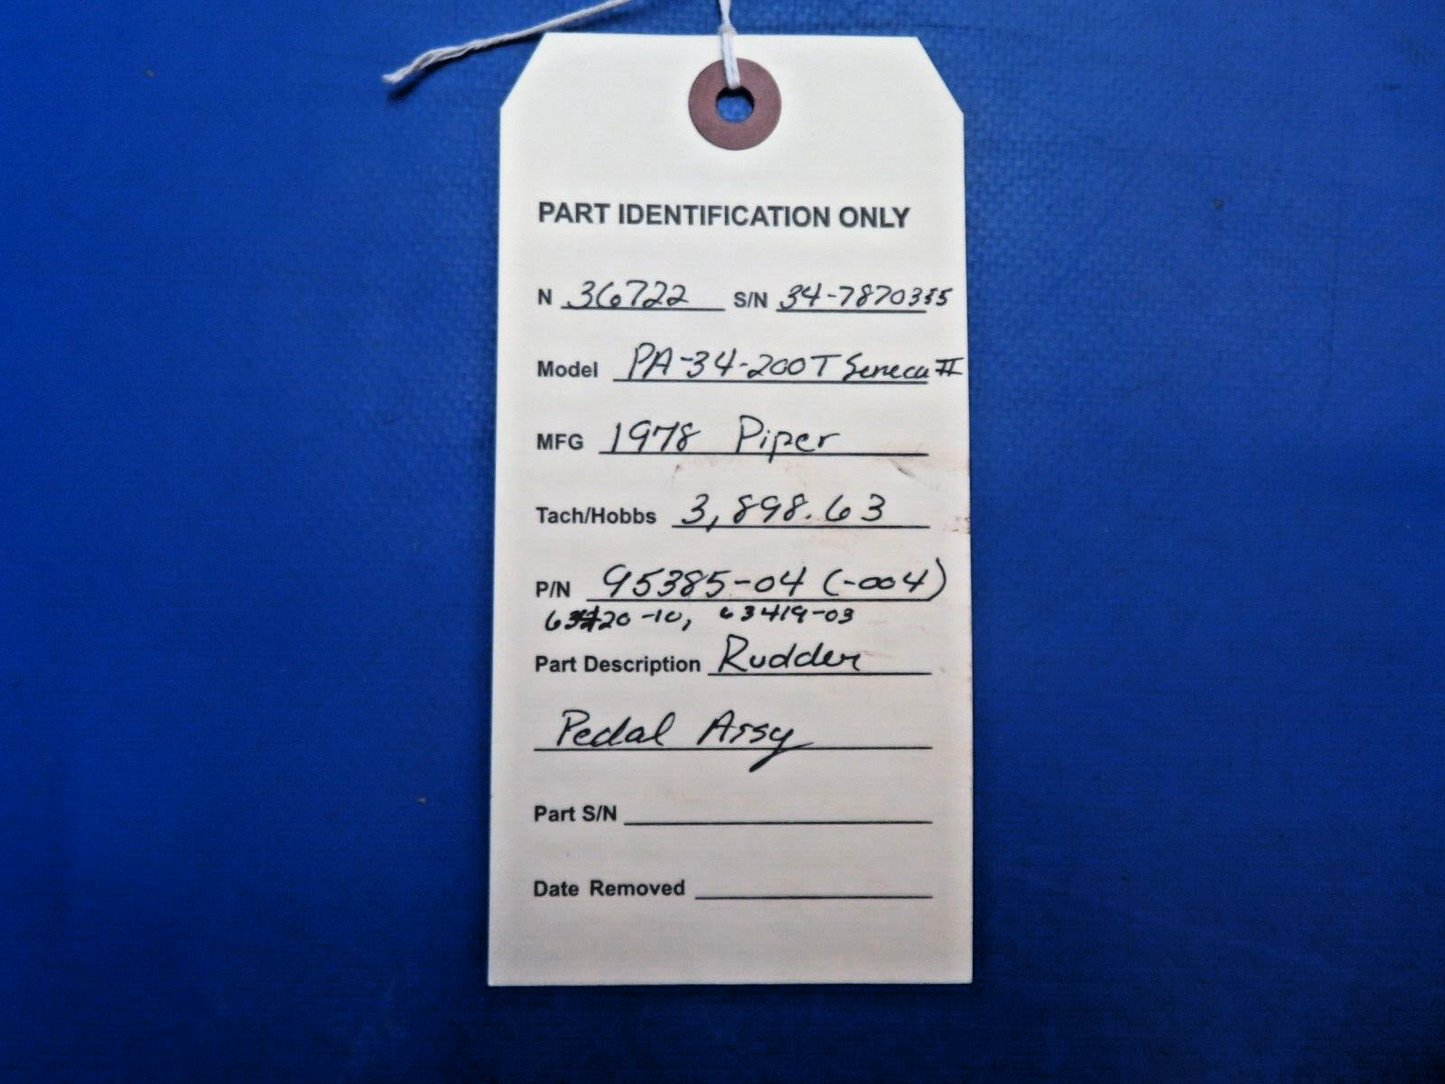 PART IDENTIFICATION ONLY
N 36722 S/N 34-7870335
Model PA-34-200T Seneca II
MFG 1978 Piper
Tach/Hobbs 3,898.63
P/N 95385-04 (-004)
63420-10, 63419-03
Part Description Rudder
Pedal Assy
Part S/N
Date Removed